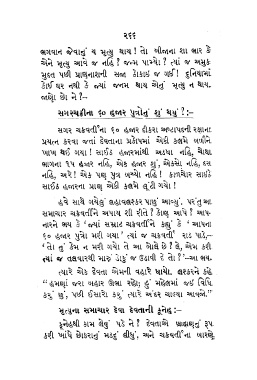 ૨૬૬
ભગવાન જેવાનું ય મૃત્યુ થાય! તો બીજાના શા ભાર કે
એને મૃત્યુ આવે જ નહિ? જન્મ પામ્યો? ત્યાં જ અમુક
મુદત પછી પ્રાણનાશની સજા ઠોકાઈ જ ગઈ! દુનિયામાં
કોઈ ઘર નથી કે જ્યાં જનમ થાય એનું મૃત્યુ ન થાય.
જાણો છો ને?:-
સગરચક્રીના ૬૦ હજાર પુત્રોનું શું થયું?:-
સગર ચક્રવર્તીના ૬૦ હજાર દીકરા અષ્ટાપદની રક્ષાના
પ્રયત્ન કરવા જતાં દેવતાના પ્રકોપમાં એકી કલમે બળીને
ખાખ થઈ ગયા! સાઈઠ હજારમાંથી અડધા નહિ, ચોથા
ભાગના ૧૫ હજાર નહિ, એક હજાર શું, એકસો નહિ, દસ
નહિ, અરે! એક પણ પુત્ર બચ્યો નહિ! કાળચોર સાઇઠે
સાઈઠ હજારના પ્રાણ એકી કલમે લૂંટી ગયો!
હવે સાથે ગયેલું લશ્કર પાછું આવ્યું. પરંતુ આ
સમાચાર ચક્રવર્તીને અપાય શી રીતે? કોણ આપે? આપ-
નારને ભય કે 'જ્યાં સમ્રાટ ચક્રવર્તીને કહ્યું કે 'આપના
૬૦ હજાર પુત્રો મરી ગયા' ત્યાં જ ચક્રવર્તી રાડ પાડે,-
'તો તું કેમ ન મરી ગયો? તે આ બોલે છે? લે, એમ કરી
ત્યાં જ તલવારથી મારું ડોકું જ ઉડાવી દે તો?'-આ ભય.
ત્યારે એક દેવતા એમની વહારે ધાયો. લશ્કરને કહે
"હમણાં જરા બહાર ઊભા રહો; હું મહેલમાં જઈ વિધિ
કરું છું, પછી ઈસારો કરું ત્યારે અંદર ચાલ્યા આવજો."
મૃત્યુના સમાચાર દેવા દેવતાની કુનેહ:-
કુનેહથી કામ લેવું પડે ને? દેવતાએ બ્રાહ્મણનું રૂપ
કરી ખાંધે છોકરાનું મડદું લીધું, અને ચક્રવર્તીના બારણે